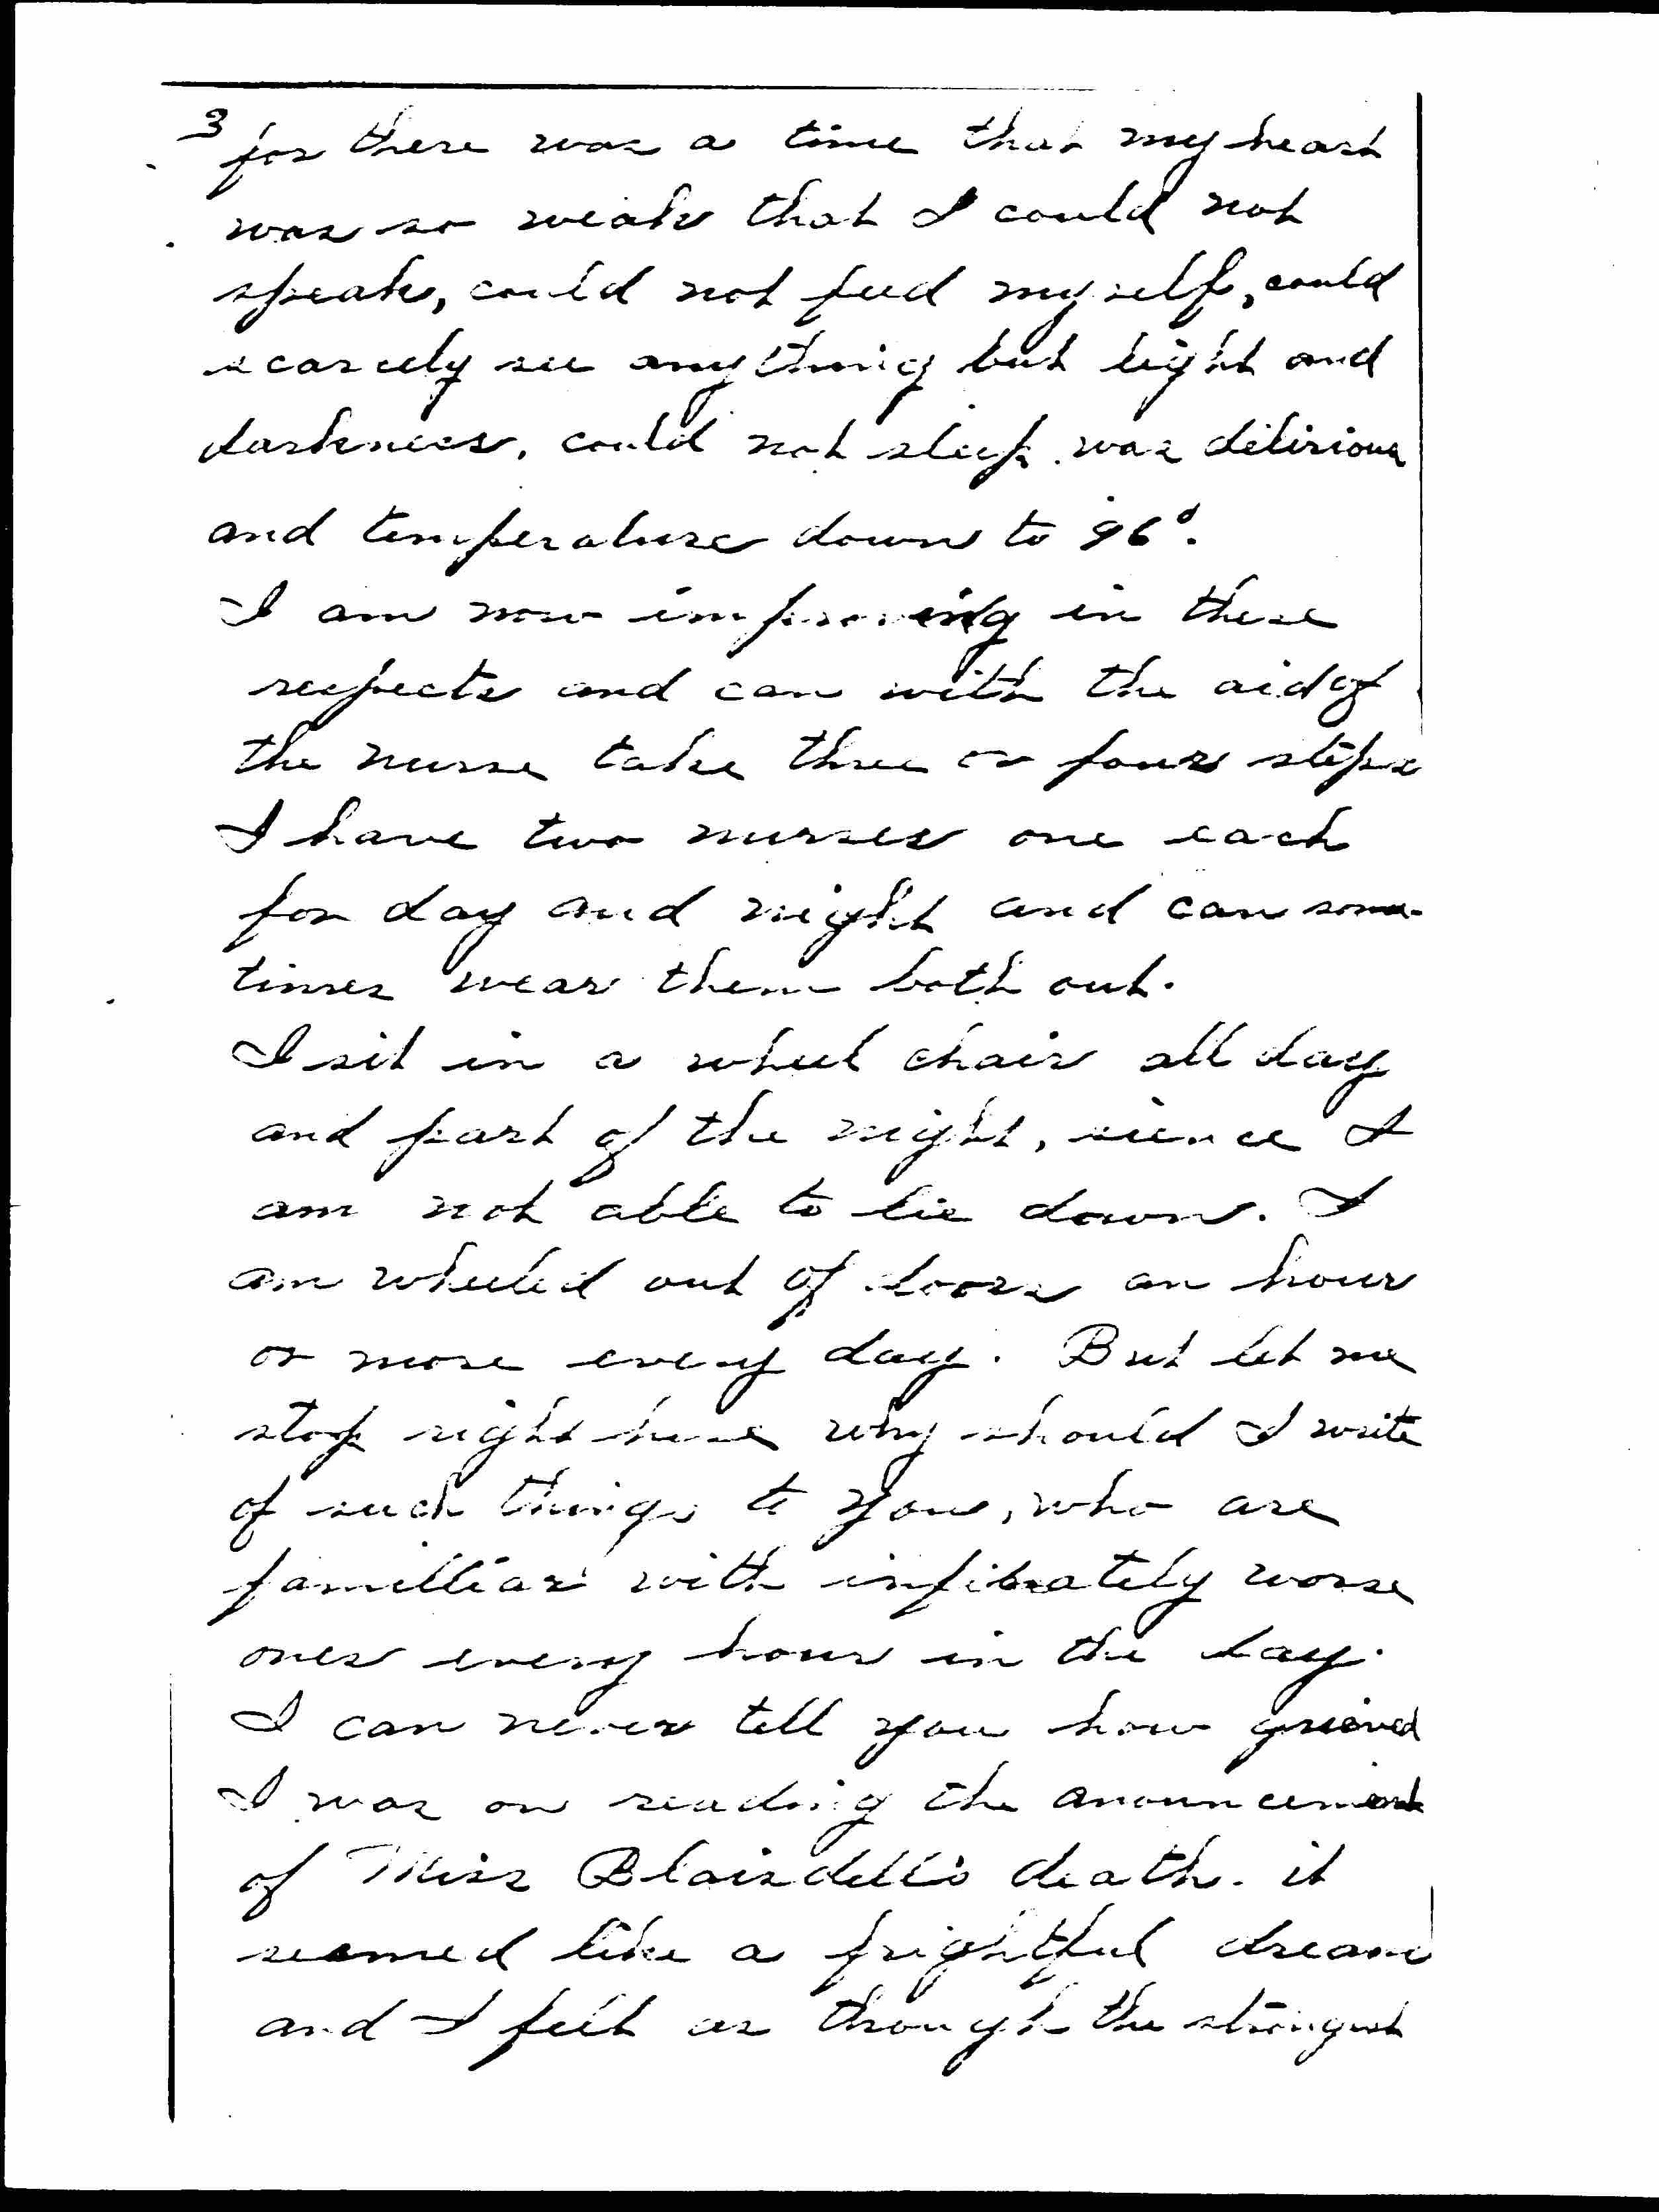 3
for there was a time that my heart
was so weak that I could not
speak, could not feed myself, could
scarcely see anything but light and
darkness, could not sleep. was delirious
and temperature down to 96°.
I am now improving in these
respects and can with the aid of
the nurse take three or four steps
I have two nurses one each
for day and night and can some-
times wear them both out.
I sit in a wheel chair all day
and part of the night, sience I
am not able to lie down. I
am wheeled out of doors an hour
or more every day. But let me
stop right here why should I write
of such things to you, who are
familliar with infinately worse
ones every hour in the day.
I can never tell you how grieved
I was on reading the anouncement
of Miss Blaisdell's death. it
seemed like a frightful dream
and I felt as though the strongest